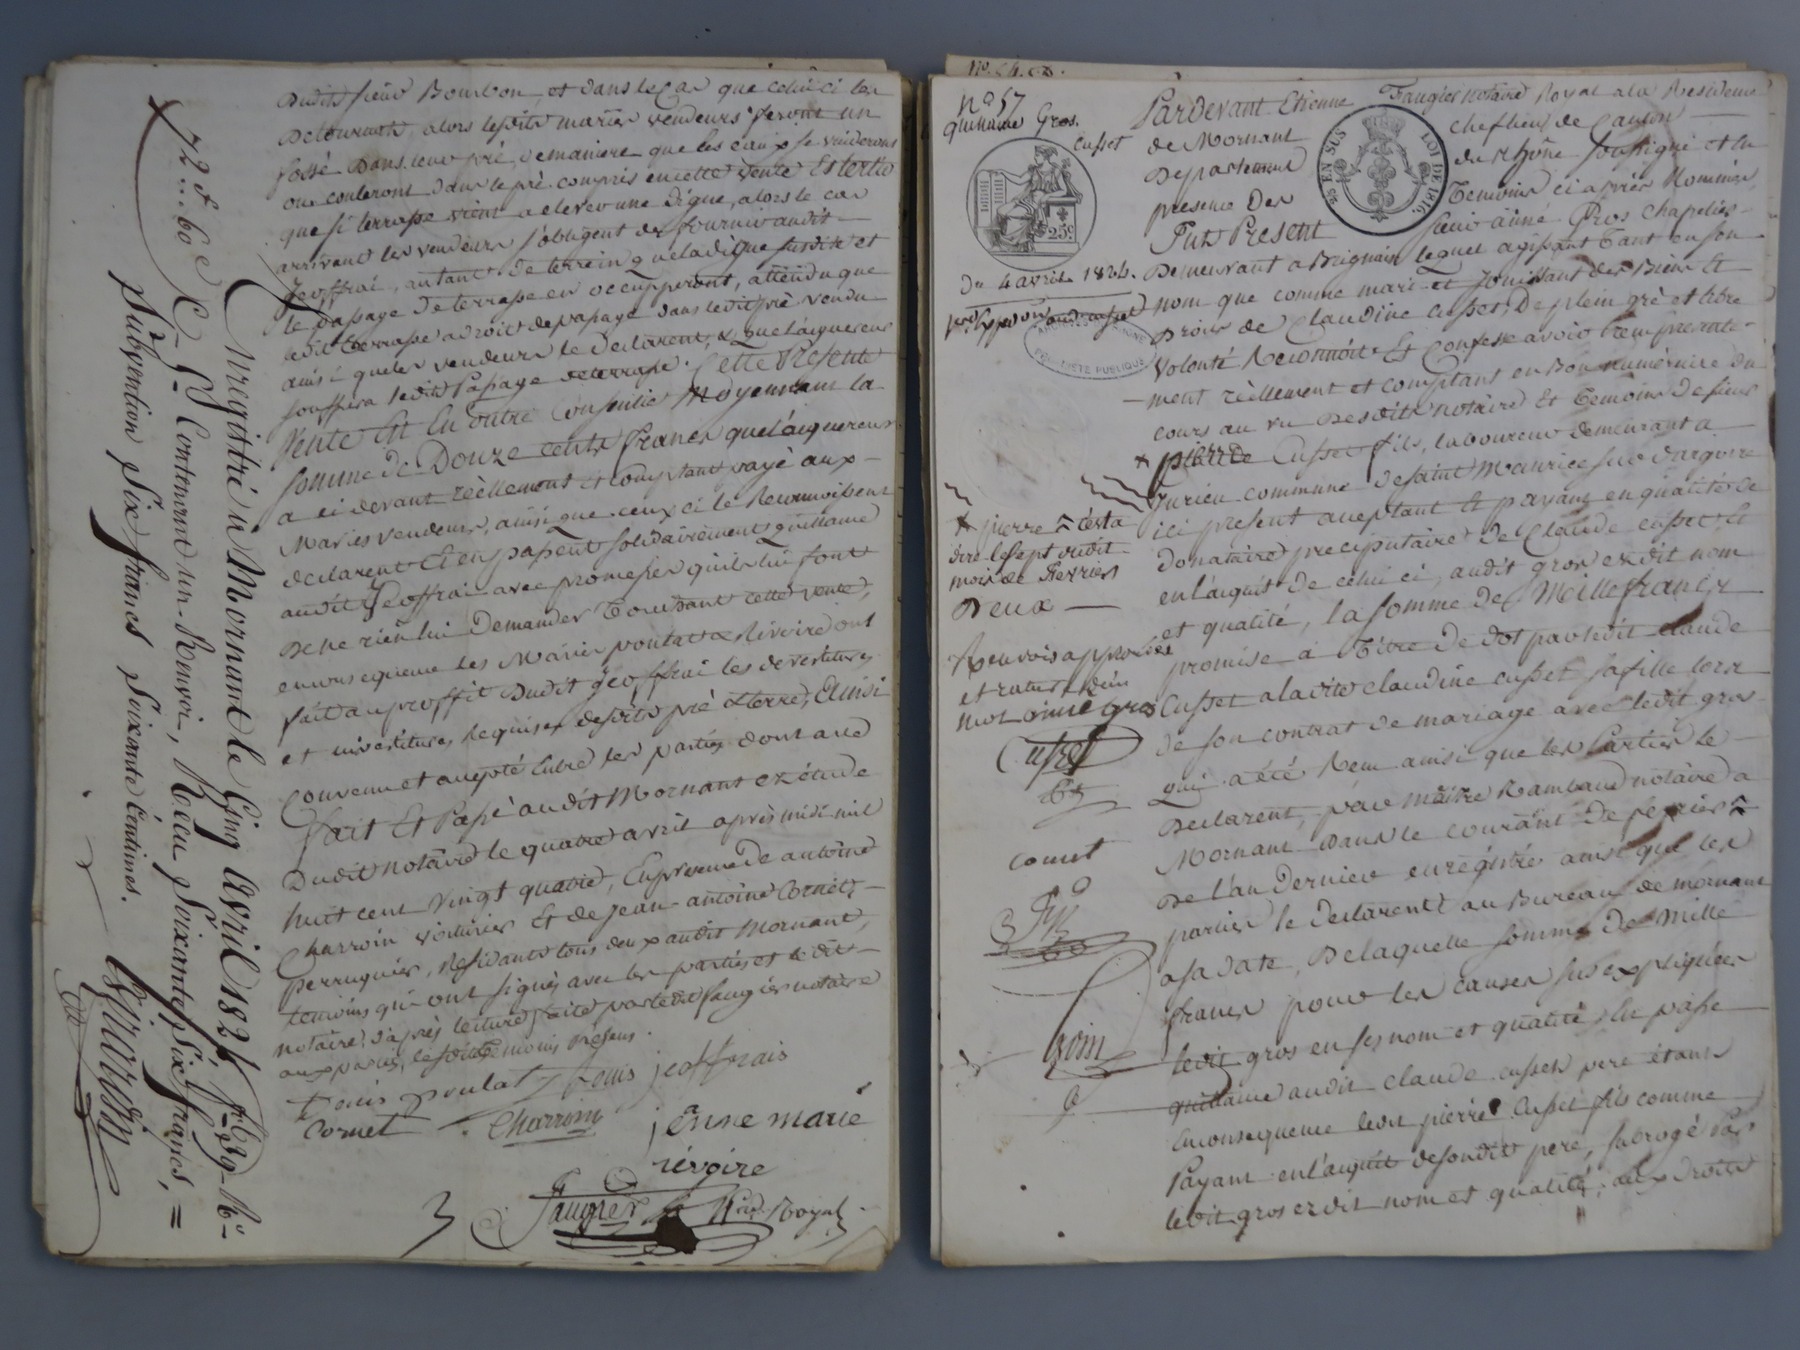 dudit sieur Bourbon, et dans le cas que celui ci les
detournat, alors lesdits mariés vendeurs feront un
fossé dans leur pré, demaniere que les eaux se videront
ou couleront dans le pré compris en cette vente Et tertio
que si terrasse vient a elever une digue, alors le cas
arrivant les vendeurs s'obligent de fournir audit
Jeoffrai, autant de terrein que ladigue susdite et
le passage de terrasse en occupperont, attendu que
ledit terrasse a droit depassage dans ledit pré vendu
ainsi que les vendeurs le declarent, & que l'aiquereur
souffrira ledit Passage de terrasse. Cette Présente
Vente Est En outre Consentie Moyennant la
somme de Douze cents francs que l'aiquereur
a ci devant réellement et comptant payé aux
Mariés vendeurs, ainsi que ceux ci le Reconnoissent
declarent Et en passent solidairement quittance
audit Jeoffrai avec promesse qu'ils lui font
De ne rien lui Demander Touchant cette vente,
en consequence les Mariés poulat & Rivoire ont
fait au proffit dudit Jeoffrai les devestitures
et investitures Requises desdits pré & terre, Ainsi
Convenu et accepté Entre les parties dont acte
fait Et Passé audit Mornant ez étude
Dudit notaire le quatre avril après midi mil
huit cent vingt quatre, En presence de antoine
Charroin voiturier Et de Jean-antoine Cornet
perruquier, Résidants tous deux audit Mornant,
temoins qui ont signés avec les parties et le dit
notaire, d'après lecture faite par ledit faugier notaire
aux parties, lesdits temoins présens.
Louis poulat Louis jeoffrais
Cornet Charroin jenne marie
révoire
Faugier Nre Royal
3
Enregistré à Mornant le Cinq Avril 1824, fo 89 Ro
C 5e Contenant un Renvoi, Reçu Soixante Six francs,
Subvention Six francs Soixante Centimes.
72f..60c
No 57
quittance Gros.
Cusset
25c
du 4 avril 1824.
ARCHIVES
PROPRIETE PUBLIQUE
25 EN SUS
LOI DE 1816.
Pardevant Etienne Faugier notaire Royal a la Residence
de Mornant chef lieu de Canton
Departement du rhône soussigné et en
présence des Temoins ci après Nommés
Fut Present sieur aimé Gros chapelier
Demeurant a Brignais lequel agissant tant en son
nom que comme mari et Jouissant des Biens Et
Droits de Claudine Cusset, De plein gré et libre
Volonté Reconnoit Et Confesse avoir Presentement
réellement et comptant en Bon numéraire du
cours au vu desdits notaire Et Temoins de sieur
Cusset fils, laboureur demeurant a
Jurieu commune de saint Maurice sur dargoire
ici present acceptant Et payant en qualité de
donataire precipuitaire de Claude cusset, Et
en l'acquit de celui ci, audit gros ezdit nom
et qualité, la somme de Mille francs
promise a Titre De dot par ledit claude
Cusset a la dite claudine cusset sa fille lors
de son contrat de mariage avec ledit gros
qui a été Recu ainsi que les Parties le
Declarent, par maitre Rambaud notaire a
Mornant dans le courant de fevrier
De l'an Dernier enregistré ainsi que les
parties le declarent au Bureau de mornant
a sa date, De laquelle somme de Mille
francs pour les causes sus expliquées
ledit gros en ses nom et qualité, En passe
quittance audit claude cusset pere étant
En consequence ledit pierre Cusset fils comme
Payant en l'acquit desondit pere, subrogé par
ledit gros ezdit nom et qualité, aux droits
pierre c'est a
dire le sept dudit
mois de Fevrier
Deux
Renvois approuvés
et rature d'un
mot aimé gros
Cusset
Cornet